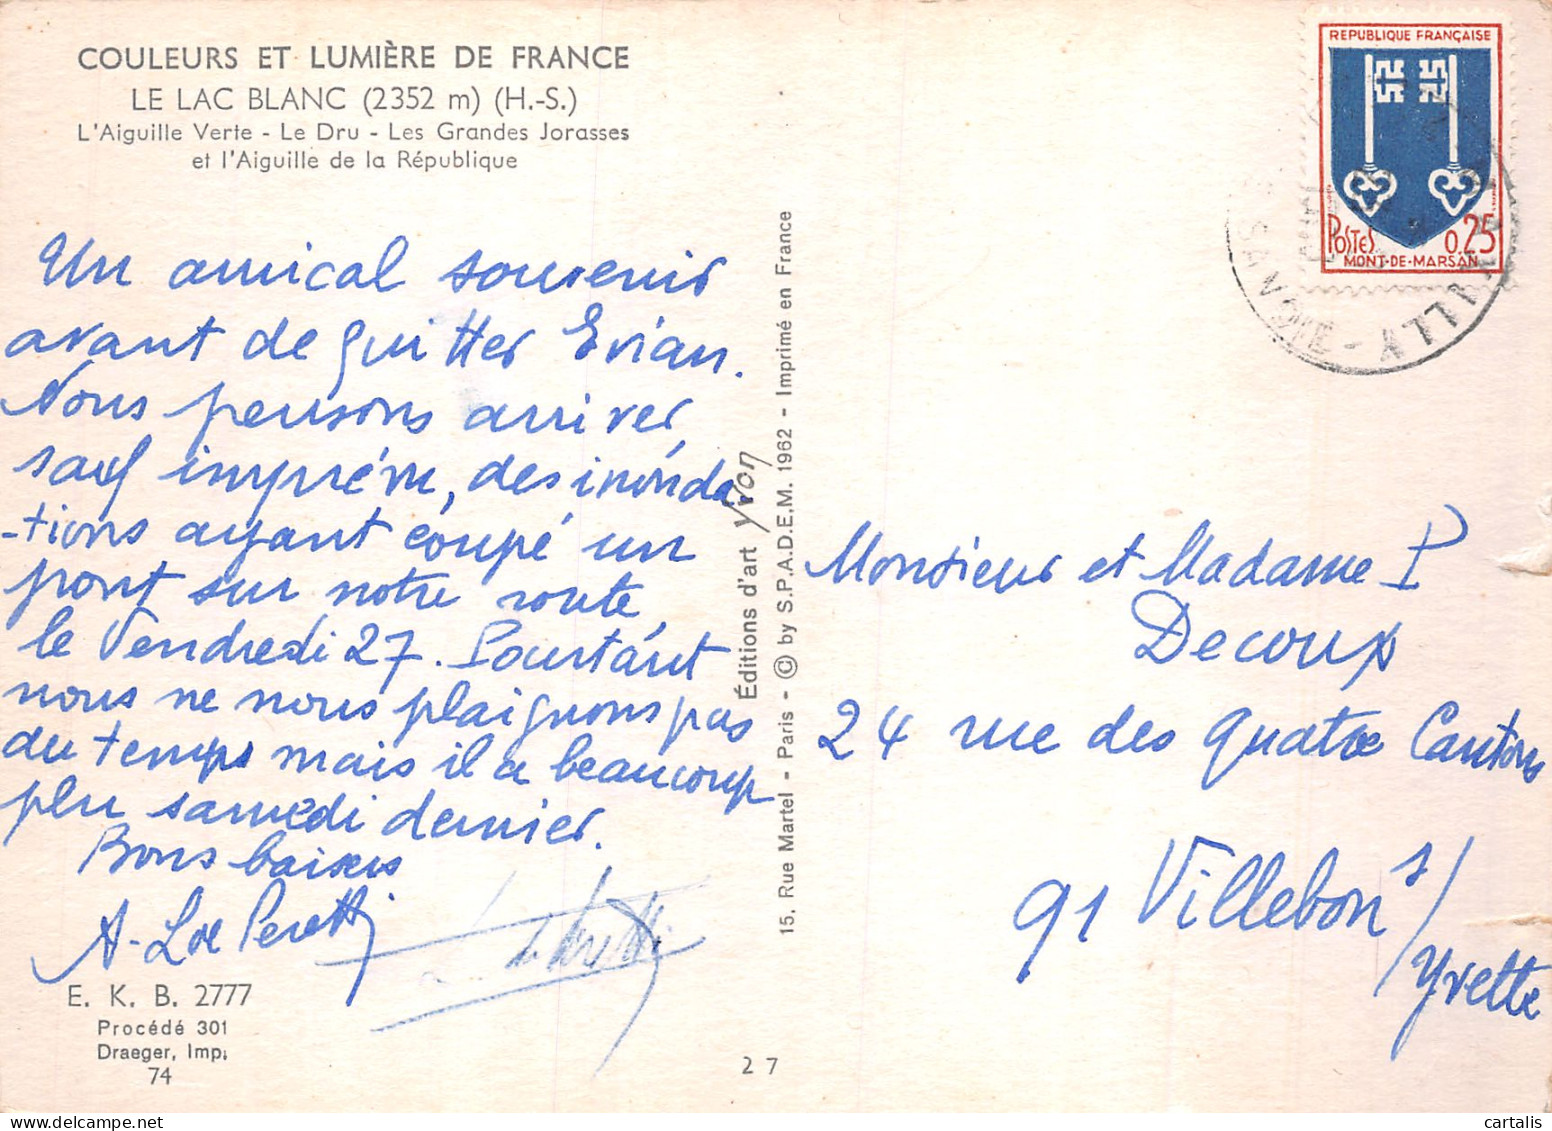 COULEURS ET LUMIÈRE DE FRANCE
LE LAC BLANC (2352 m) (H.-S.)
L'Aiguille Verte - Le Dru - Les Grandes Jorasses
et l'Aiguille de la République
Un amical souvenir
avant de quitter Evian.
Nous pensons arriver,
sauf imprévu, des inonda
-tions ayant coupé un
pont sur notre route,
le Vendredi 27. Pourtant
nous ne nous plaignons pas
du temps mais il a beaucoup
plu samedi dernier.
Bons baisers
A. Peretti
E. K. B. 2777
Procédé 301
Draeger, Imp.
74
Éditions d'art yvon
15, Rue Martel - Paris - © by S.P.A.D.E.M. 1962 - Imprimé en France
27
REPUBLIQUE FRANÇAISE
POSTES 0,25
MONT-DE-MARSAN
SAVOIE
Monsieur et Madame P
Decoup
24 rue des quatre Cantons
91 Villebon s/
Yvette
© cartalis